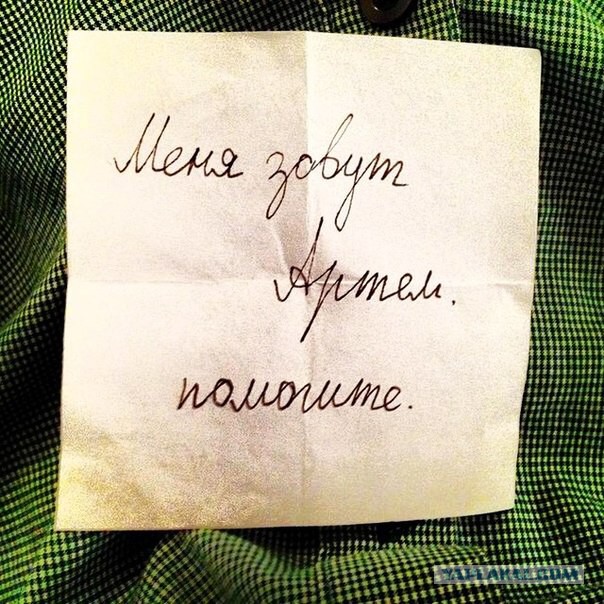 Меня зовут
Артем.
помогите.
YAPLAKAL.COM